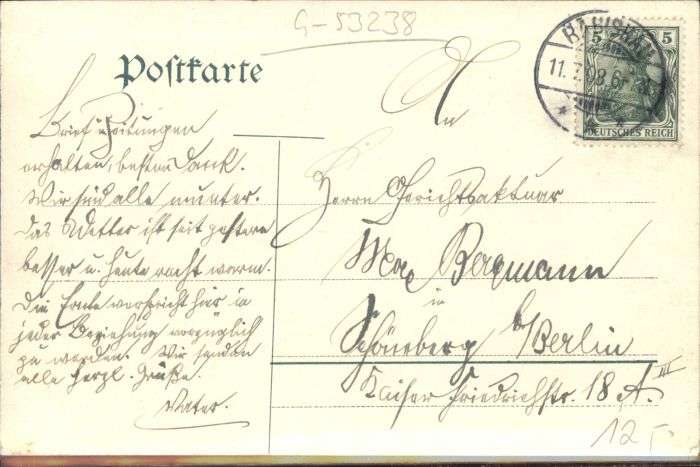 G-53238
Postkarte
5 5
DEUTSCHES REICH
11.7.08.6-7
An
Brief u. Zeitungen
erhalten, besten Dank.
Wir sind alle munter.
Das Wetter ist seit gestern
besser u. heute recht warm.
Die Ernte verspricht hier in
jeder Beziehung vorzüglich
zu werden. Wir senden
alle herzl. Grüße.
Vater.
Herrn Gerichtsaktuar
Max Bergmann
in
Schöneberg b/Berlin
Kaiser Friedrichstr. 18 A. III
12,-